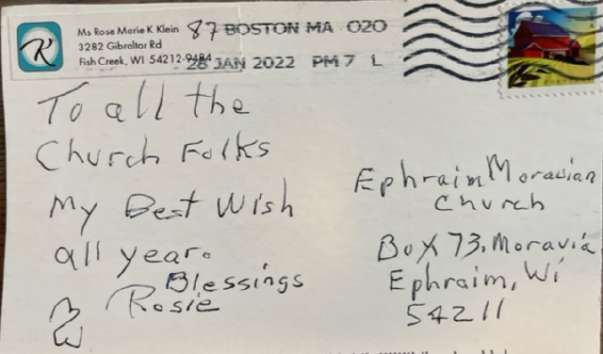 K
Ms Rose Marie K Klein
3282 Gibraltar Rd
Fish Creek, WI 54212-9484
87 BOSTON MA 020
28 JAN 2022 PM 7 L
To all the
Church Folks
My Best Wish
all year.
Blessings
Rosie
Ephraim Moravian
Church
Box 73. Moravia
Ephraim, Wi
54211